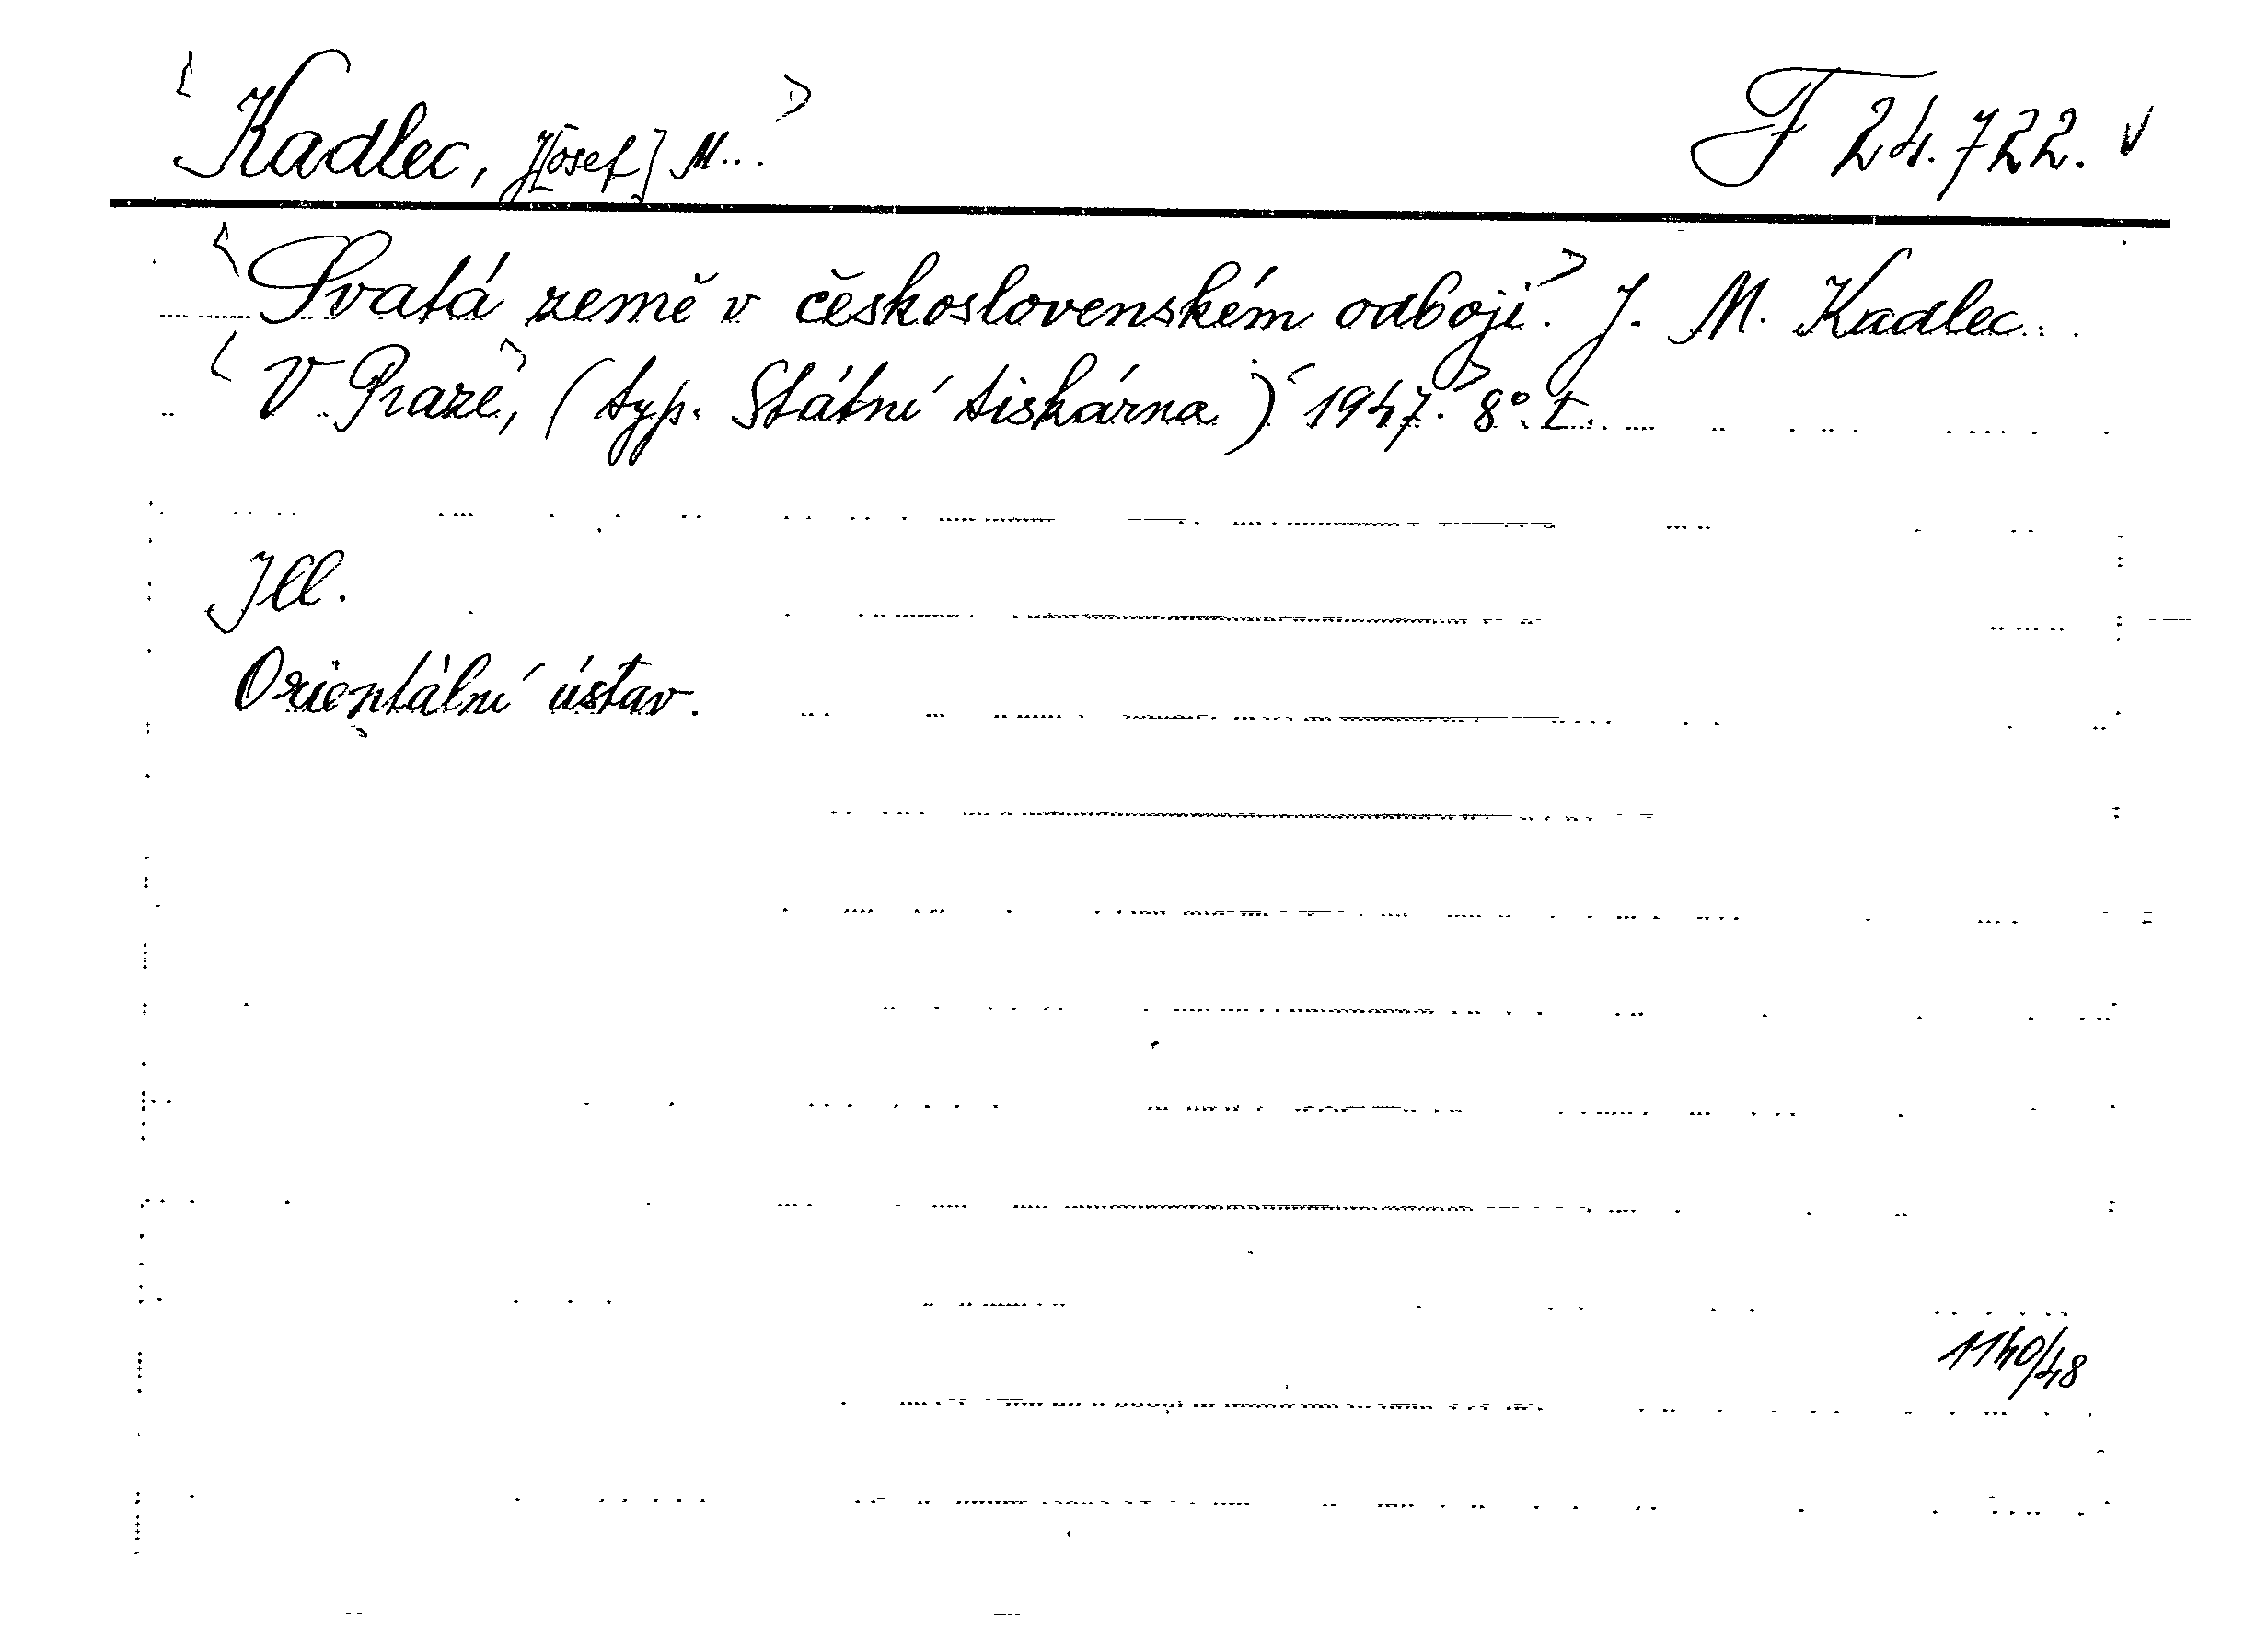 <Kadlec, J[osef] M...> F 24.722. v
<Svatá země v československém odboji.> J. M. Kadlec...
<V Praze>, (typ. Státní tiskárna) <1947.> 8°. t.
Ill.
Orientální ústav.
1140/48